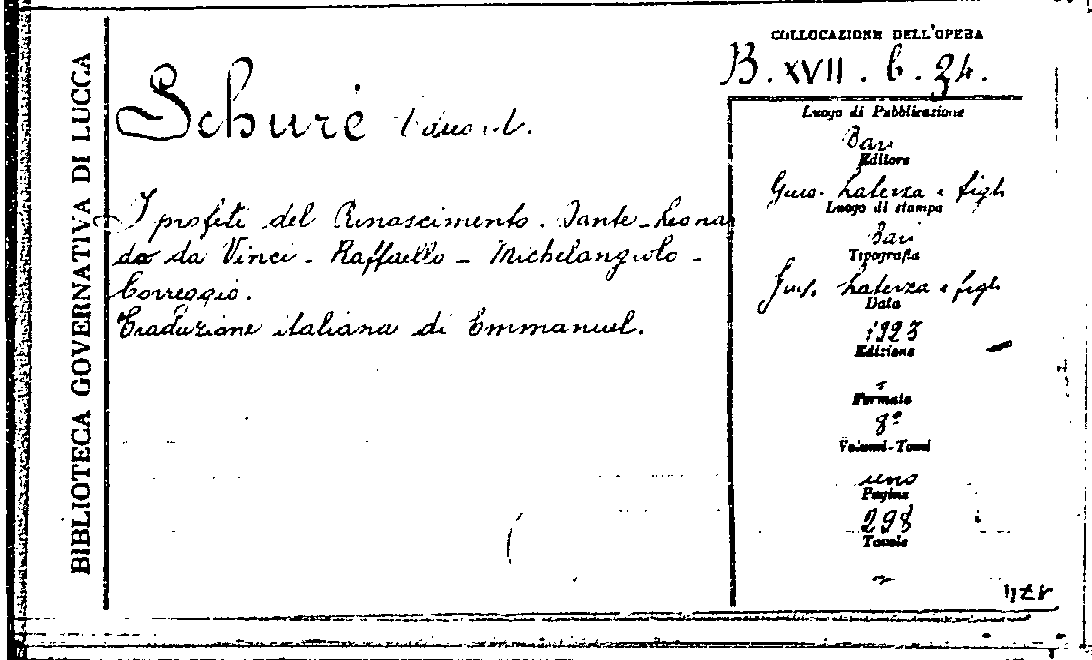 BIBLIOTECA GOVERNATIVA DI LUCCA
Schuré Eduard.
I profeti del Rinascimento. Dante - Leona
do da Vinci - Raffaello - Michelangiolo -
Correggio.
Traduzione italiana di Emmanuel.
COLLOCAZIONE DELL'OPERA
B. XVII. 6. 34.
Luogo di Pubblicazione
Bari
Editore
Gius. Laterza e figli
Luogo di stampa
Bari
Tipografia
Gius. Laterza e figli
Data
1923
Edizione
Formato
8º
Volumi-Tomi
uno
Pagine
298
Tavole